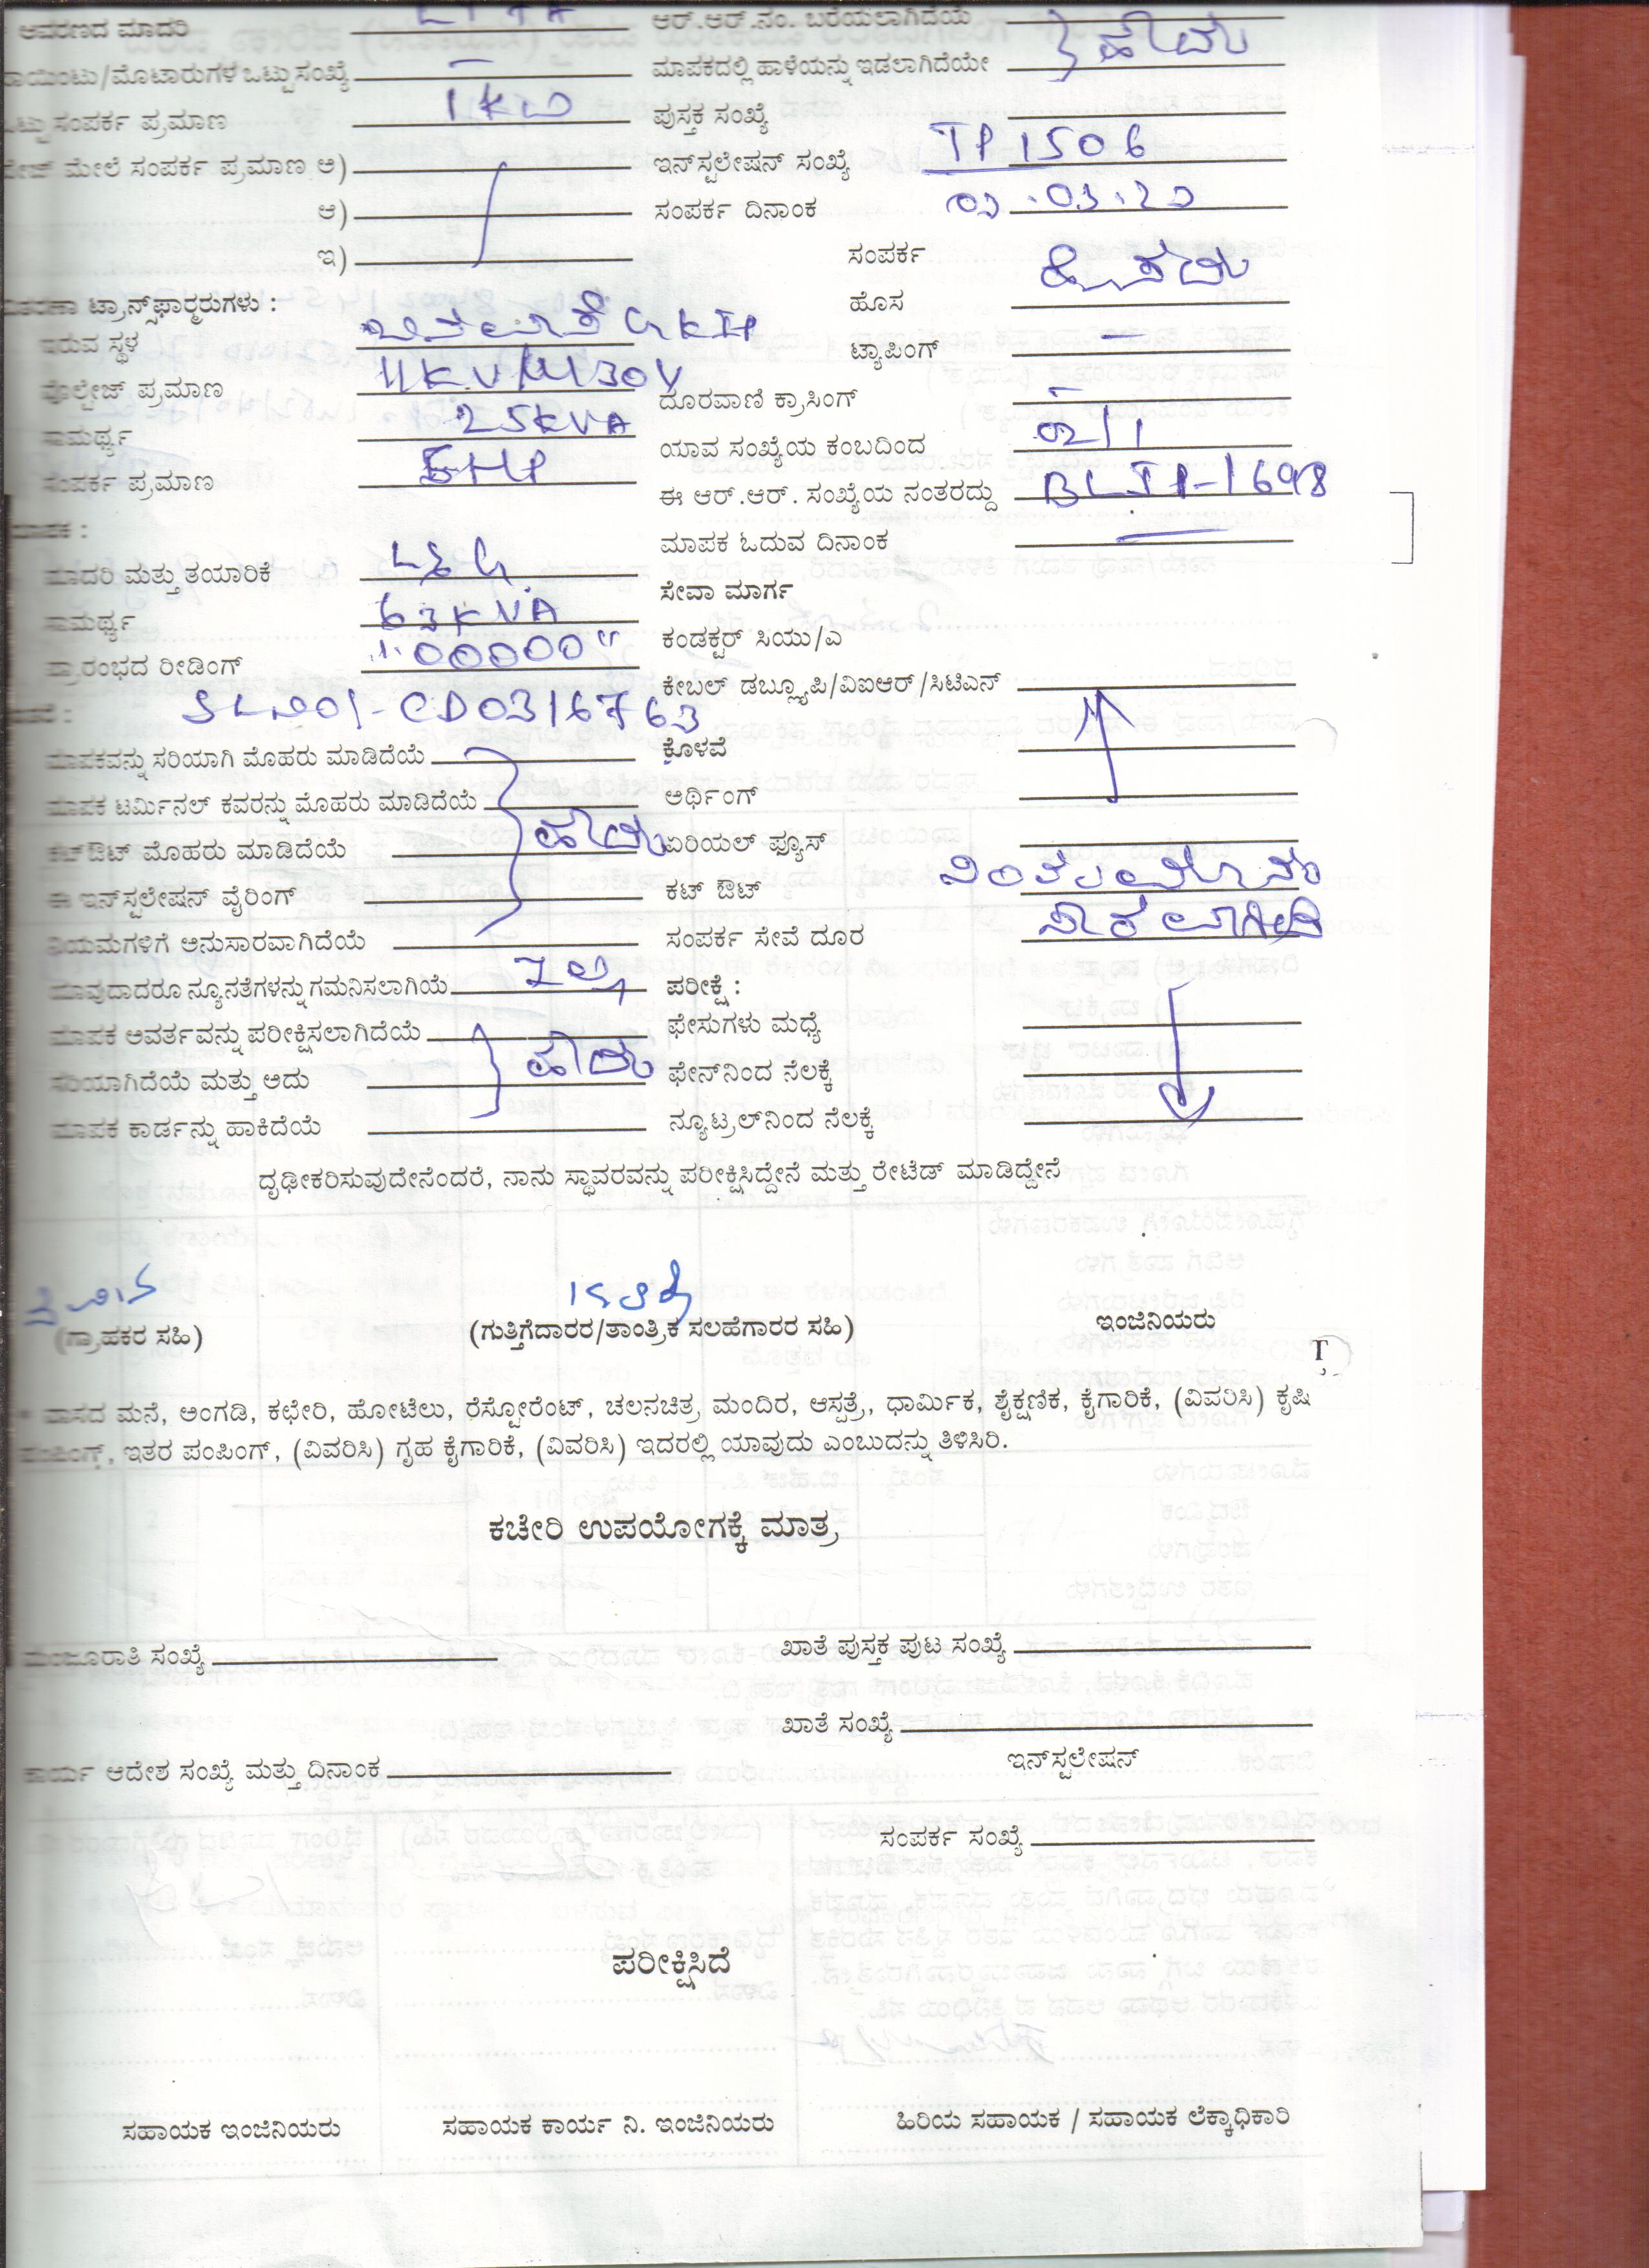 ಆವರಣದ ಮಾದರಿ ಆರ್.ಆರ್.ನಂ. ಬರೆಯಲಾಗಿದೆಯೆ
ಪಾಯಿಂಟು/ಮೊಟಾರುಗಳ ಒಟ್ಟು ಸಂಖ್ಯೆ — ಮಾಪಕದಲ್ಲಿ ಹಾಳೆಯನ್ನು ಇಡಲಾಗಿದೆಯೇ ಹೌದು
ಒಟ್ಟು ಸಂಪರ್ಕ ಪ್ರಮಾಣ 1 KW ಪುಸ್ತಕ ಸಂಖ್ಯೆ
ಮೇಲೆ ಸಂಪರ್ಕ ಪ್ರಮಾಣ ಅ) ಇನ್‌ಸ್ಟಲೇಷನ್ ಸಂಖ್ಯೆ IP 1506
ಆ) ಸಂಪರ್ಕ ದಿನಾಂಕ .03.20
ಇ) ಸಂಪರ್ಕ
ವಿತರಣಾ ಟ್ರಾನ್ಸ್‌ಫಾರ್ಮರುಗಳು : ಹೊಸ ಹೊಸದು
ಇರುವ ಸ್ಥಳ ಟ್ಯಾಪಿಂಗ್ —
ವೋಲ್ಟೇಜ್ ಪ್ರಮಾಣ 11KV/ ದೂರವಾಣಿ ಕ್ರಾಸಿಂಗ್ —
ಸಾಮರ್ಥ್ಯ 25KVA ಯಾವ ಸಂಖ್ಯೆಯ ಕಂಬದಿಂದ
ಸಂಪರ್ಕ ಪ್ರಮಾಣ 5HP ಈ ಆರ್.ಆರ್. ಸಂಖ್ಯೆಯ ನಂತರದ್ದು BLIP-1698
ಮಾಪಕ : ಮಾಪಕ ಓದುವ ದಿನಾಂಕ —
ಮಾದರಿ ಮತ್ತು ತಯಾರಿಕೆ L&G ಸೇವಾ ಮಾರ್ಗ
ಸಾಮರ್ಥ್ಯ 63KVA ಕಂಡಕ್ಟರ್ ಸಿಯು/ಎ
ಪ್ರಾರಂಭದ ರೀಡಿಂಗ್ "00000" ಕೇಬಲ್ ಡಬ್ಲ್ಯೂಪಿ/ವಿಐಆರ್/ಸಿಟಿಎನ್
SL NO1-CD0316763
ಮಾಪಕವನ್ನು ಸರಿಯಾಗಿ ಮೊಹರು ಮಾಡಿದೆಯೆ ಕೊಳವೆ
ಮಾಪಕ ಟರ್ಮಿನಲ್ ಕವರನ್ನು ಮೊಹರು ಮಾಡಿದೆಯೆ ಅರ್ಥಿಂಗ್
ಕಟ್‌ಔಟ್ ಮೊಹರು ಮಾಡಿದೆಯೆ ಹೌದು ಏರಿಯಲ್ ಫ್ಯೂಸ್
ಈ ಇನ್‌ಸ್ಟಲೇಷನ್ ವೈರಿಂಗ್ ಕಟ್ ಔಟ್
ನಿಯಮಗಳಿಗೆ ಅನುಸಾರವಾಗಿದೆಯೆ ಸಂಪರ್ಕ ಸೇವೆ ದೂರ
ಯಾವುದಾದರೂ ನ್ಯೂನತೆಗಳನ್ನು ಗಮನಿಸಲಾಗಿಯೆ ಇಲ್ಲ ಪರೀಕ್ಷೆ :
ಮಾಪಕ ಆವರ್ತವನ್ನು ಪರೀಕ್ಷಿಸಲಾಗಿದೆಯೆ ಫೇಸುಗಳು ಮಧ್ಯೆ
ಸರಿಯಾಗಿದೆಯೆ ಮತ್ತು ಅದು ಹೌದು ಫೇನ್‌ನಿಂದ ನೆಲಕ್ಕೆ
ಮಾಪಕ ಕಾರ್ಡನ್ನು ಹಾಕಿದೆಯೆ ನ್ಯೂಟ್ರಲ್‌ನಿಂದ ನೆಲಕ್ಕೆ
ದೃಢೀಕರಿಸುವುದೇನೆಂದರೆ, ನಾನು ಸ್ಥಾವರವನ್ನು ಪರೀಕ್ಷಿಸಿದ್ದೇನೆ ಮತ್ತು ರೇಟೆಡ್ ಮಾಡಿದ್ದೇನೆ
(ಗ್ರಾಹಕರ ಸಹಿ) (ಗುತ್ತಿಗೆದಾರರ/ತಾಂತ್ರಿಕ ಸಲಹೆಗಾರರ ಸಹಿ) ಇಂಜಿನಿಯರು
* ವಾಸದ ಮನೆ, ಅಂಗಡಿ, ಕಛೇರಿ, ಹೋಟೆಲು, ರೆಸ್ಟೋರೆಂಟ್, ಚಲನಚಿತ್ರ ಮಂದಿರ, ಆಸ್ಪತ್ರೆ, ಧಾರ್ಮಿಕ, ಶೈಕ್ಷಣಿಕ, ಕೈಗಾರಿಕೆ, (ವಿವರಿಸಿ) ಕೃಷಿ
ಪಂಪಿಂಗ್, ಇತರ ಪಂಪಿಂಗ್, (ವಿವರಿಸಿ) ಗೃಹ ಕೈಗಾರಿಕೆ, (ವಿವರಿಸಿ) ಇದರಲ್ಲಿ ಯಾವುದು ಎಂಬುದನ್ನು ತಿಳಿಸಿರಿ.
ಕಚೇರಿ ಉಪಯೋಗಕ್ಕೆ ಮಾತ್ರ
ಮಂಜೂರಾತಿ ಸಂಖ್ಯೆ ಖಾತೆ ಪುಸ್ತಕ ಪುಟ ಸಂಖ್ಯೆ
ಖಾತೆ ಸಂಖ್ಯೆ
ಕಾರ್ಯ ಆದೇಶ ಸಂಖ್ಯೆ ಮತ್ತು ದಿನಾಂಕ ಇನ್‌ಸ್ಟಲೇಷನ್
ಸಂಪರ್ಕ ಸಂಖ್ಯೆ
ಪರೀಕ್ಷಿಸಿದೆ
ಸಹಾಯಕ ಇಂಜಿನಿಯರು ಸಹಾಯಕ ಕಾರ್ಯ ನಿ. ಇಂಜಿನಿಯರು ಹಿರಿಯ ಸಹಾಯಕ / ಸಹಾಯಕ ಲೆಕ್ಕಾಧಿಕಾರಿ